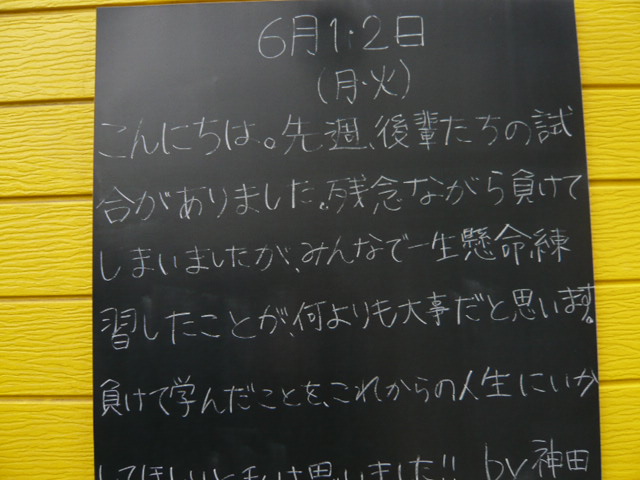 6月1・2日
(月・火)
こんにちは。先週、後輩たちの試
合がありました。残念ながら負けて
しまいましたが、みんなで一生懸命練
習したことが、何よりも大事だと思います。
負けて学んだことを、これからの人生にいか
してほしいと私は思いました!! by 神田